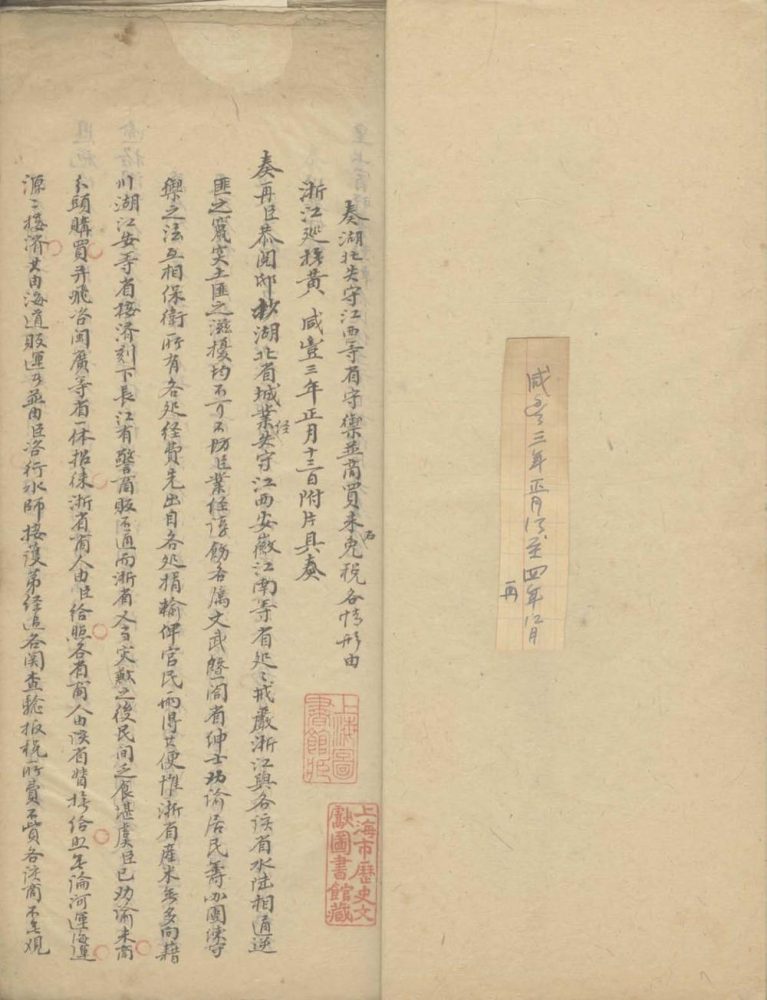 咸豐三年正月份至四年12月
再
奏湖北失守江西等省守禦並商買米石免稅各情形由
浙江巡撫黃 咸豐三年正月十三日附片具奏
奏再臣恭閱邸抄湖北省城業經失守江西安徽江南等省處處戒嚴浙江與各該省水陸相通逆
匪之竄突土匪之滋擾均不可不防臣業經諄飭各屬文武暨闔省紳士劝諭居民籌办團練守
禦之法互相保衛所有各处经費先出自各处捐輸俾官民兩得其便惟浙省産米無多向藉
川湖江安等省接濟刻下長江有警商販不通而浙省又当灾歉之後民间乏食堪虞臣已劝諭米商
分頭購買并飛咨闽廣等省一体招徕浙省商人由臣给照各省商人由该省督撫给照無論河運海運
源源接濟其由海道販運者並由臣咨行水師接護第经过各関查驗报税所費不貲各该商不無观
上海圖書館藏
上海市歷史文獻圖書館藏